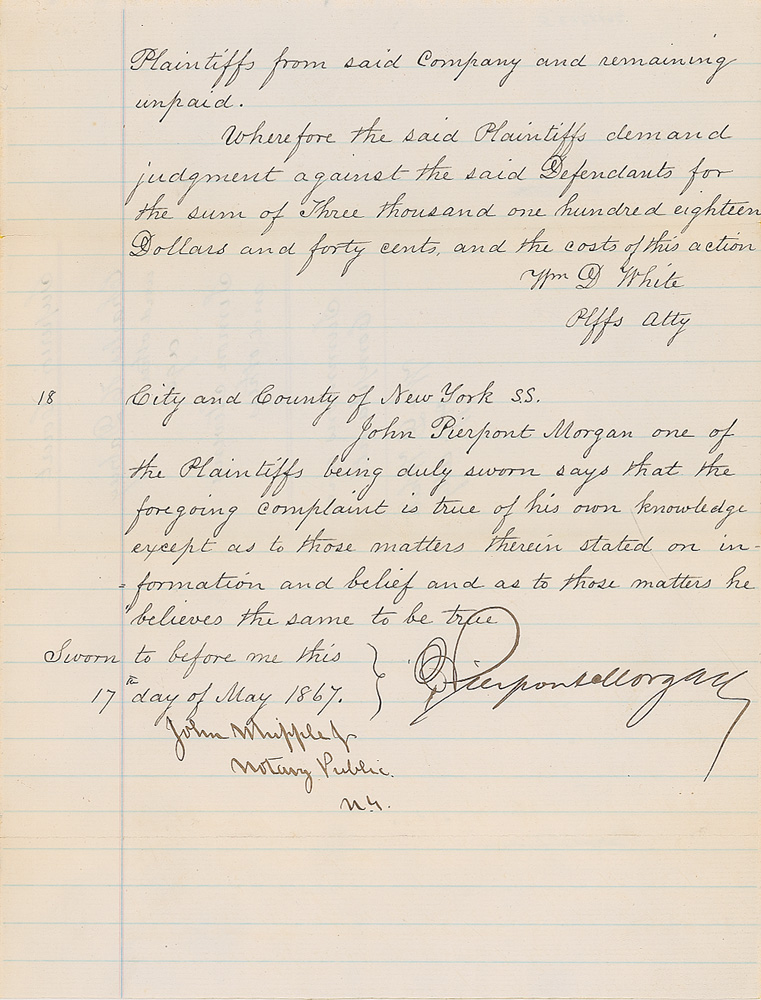 Plaintiffs from said Company and remaining
unpaid.
Wherefore the said Plaintiffs demand
judgment against the said Defendants for
the sum of Three thousand one hundred eighteen
Dollars and forty cents, and the costs of this action
Wm D White
Plffs Atty
18 City and County of New York SS.
John Pierpont Morgan one of
the Plaintiffs being duly sworn says that the
foregoing complaint is true of his own knowledge
except as to those matters therein stated on in-
=formation and belief and as to those matters he
believes the same to be true
Sworn to before me this
17th day of May 1867.
J Pierpont Morgan
John Whipple Jr
Notary Public.
N.Y.